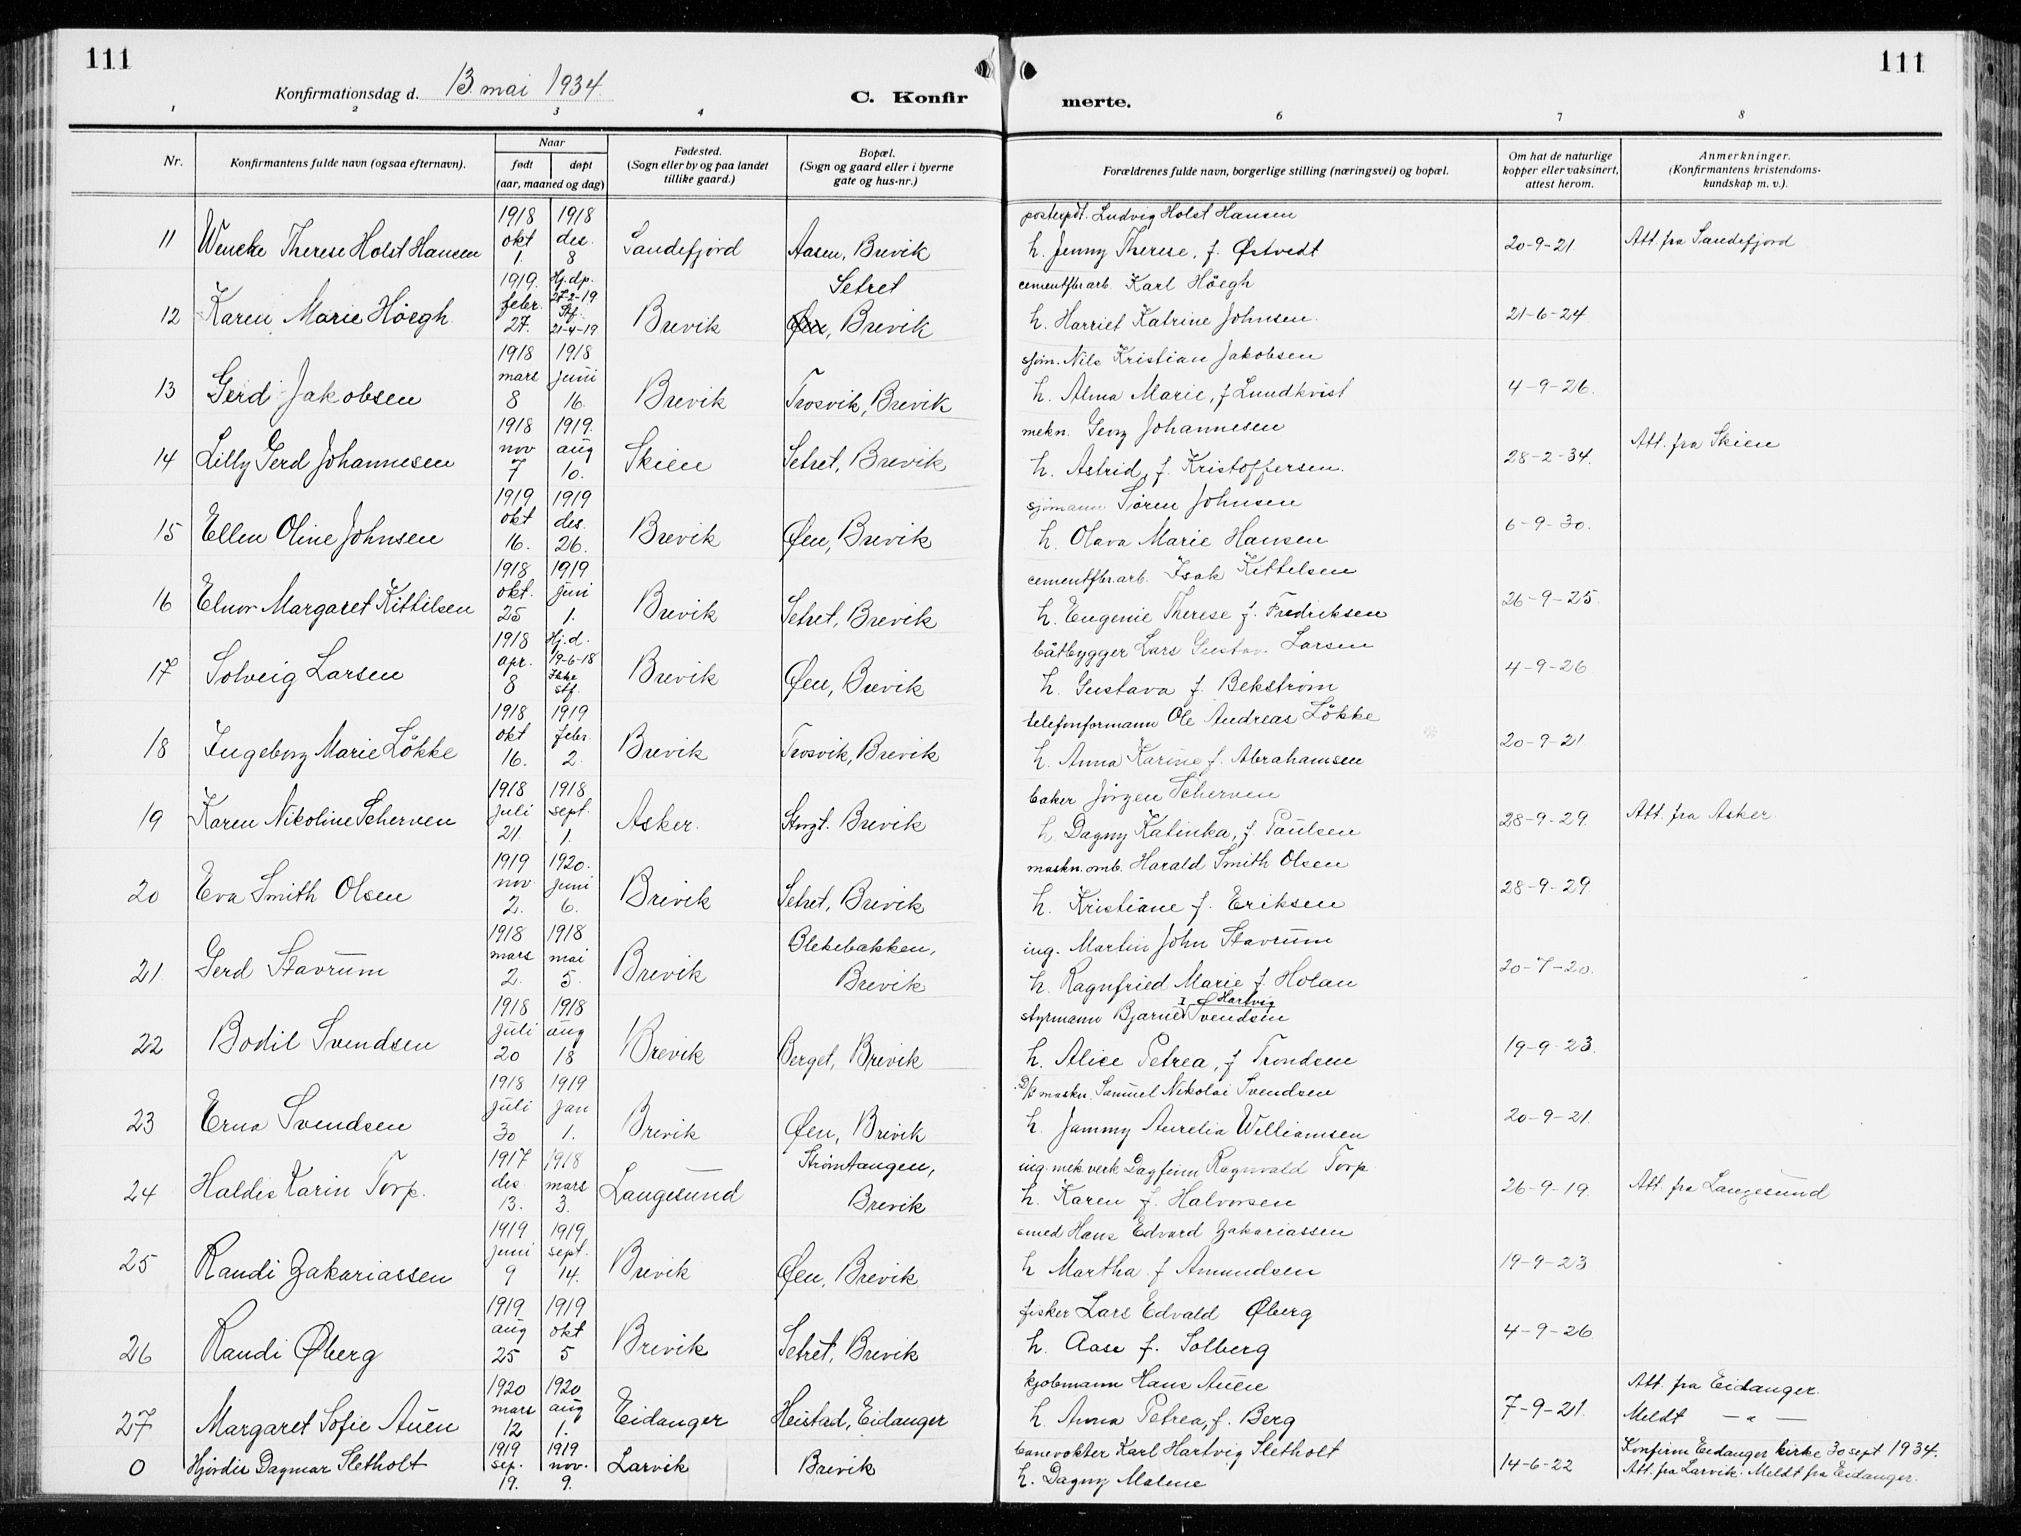 111
111
Konfirmationsdag d. 13 mai 1934.
C. Konfir
merte.
1 2 3 4 6 7 8
Nr.
Konfirmantens fulde navn (ogsaa efternavn).
Naar
født døpt
(aar, maaned og dag)
Fødested.
(Sogn eller by og paa landet
tillike gaard.)
Bopæl.
(Sogn og gaard eller i byerne
gate og hus-nr.)
Forældrenes fulde navn, borgerlige stilling (næringsvei) og bopæl.
Om hat de naturlige
kopper eller vaksinert,
attest herom.
Anmerkninger.
(Konfirmantens kristendoms-
kundskap m. v.).
1918 1918 postexpdt. Ludvig Holst Hansen
11 Wencke Therese Holst Hansen okt des. Sandefjord Aasen, Brevik h. Jenny Therese, f. Østvedt 20-9-21 Att. fra Sandefjord
1. 8
1919. Hj.dp. Setret cementfbr.arb. Karl Höegh
12 Karen Marie Höegh febr. 27-2-19 Brevik Øen, Brevik h. Harriet Katrine Johnsen. 21-6-24
27. Stf. 21-4-19
1918 1918 sjøm. Nils Kristian Jakobsen
13 Gerd Jakobsen mars juni Brevik Trosvik, Brevik h. Alma Marie, f Lundkvist 4-9-26.
8 16.
1918 1919. mekn. Georg Johannesen
14 Lilly Gerd Johannesen nov aug Skien Setret, Brevik h. Astrid, f. Kristoffersen. 28-2-34. Att. fra Skien
7 10.
1919 1919 sjømann Sören Johnsen
15 Ellen Oline Johnsen okt des. Brevik Øen, Brevik h. Olava Marie Hansen 6-9-30.
16. 26.
1918 1919 cementfbr.arb. Isak Kittelsen
16 Elnor Margaret Kittilsen okt. juni Brevik Setret, Brevik h. Eugenie Therese f. Fredriksen 26-9-25.
25 1.
1918 Hj.d. båtbygger Lars Gustav. Larsen
17 Solveig Larsen apr. 19-6-18 Brevik Øen, Brevik h. Gustava f. Bekström 4-9-26
8 Ikke stf.
1918 1919 telefonformann Ole Andreas Lökke
18 Ingeborg Marie Lökke okt febr. Brevik Trosvik, Brevik h. Anna Karine f. Abrahamsen 20-9-21
16. 2.
1918 1918 baker Jörgen Scherven
19 Karen Nikoline Scherven juli sept. Asker. Storgt. Brevik h. Dagny Katinka, f. Paulsen 28-9-29. Att. fra Asker.
21. 1.
1919 1920. maskn. omb. Harald Smith Olsen
20 Eva Smith Olsen nov. juni Brevik Setret, Brevik h. Kristiane f. Eriksen 28-9-29
2. 6.
1918 1918 Blekebakken, ing. Martin John Stavrum
21 Gerd Stavrum mars mai Brevik Brevik h. Ragnfried Marie f. Holan 20-7-20.
2. 5.
1918 1918 styrmann Bjarne Hartvig Svendsen
22 Bodil Svendsen juli aug Brevik Berget, Brevik h. Alice Petrea, f Trondsen 19-9-23.
20 18
1918 1919 D/S maskn. Samuel Nikolai Svendsen
23 Erna Svendsen juli jan Brevik Øen, Brevik h. Jammy Aurelia Williamsen 20-9-21.
30 1.
1917 1918 Strömtangen, ing. mek. verk Dagfinn Ragnvald Torp
24 Haldis Karin Torp. des. mars Langesund Brevik h. Karen f. Halvorsen 26-9-19. Att. fra Langesund
13. 3.
1919 1919 smed Hans Edvard Zakariassen
25 Randi Zakariassen juni sept. Brevik Øen, Brevik h Martha f Amundsen 19-9-23
9 14.
1919 1919 fisker Lars Edvald Øberg
26 Randi Øberg aug okt Brevik Setret, Brevik h. Aase f. Solberg 4-9-26
25 5
1920 1920 kjöbmann Hans Auen Att. fra Eidanger.
27 Margaret Sofie Auen mars aug Eidanger Heistad, Eidanger h. Anna Petrea, f. Berg 7-9-21. Meldt — " —
12 1.
1919 1919 banevokter Karl Hartvig Sletholt Konfirm Eidanger kirke 30 sept 1934.
0 Hjördis Dagmar Sletholt sep. nov. Larvik Brevik h. Dagny Malene 14-6-22 Att. fra Larvik. Meldt fra Eidanger.
19. 9.